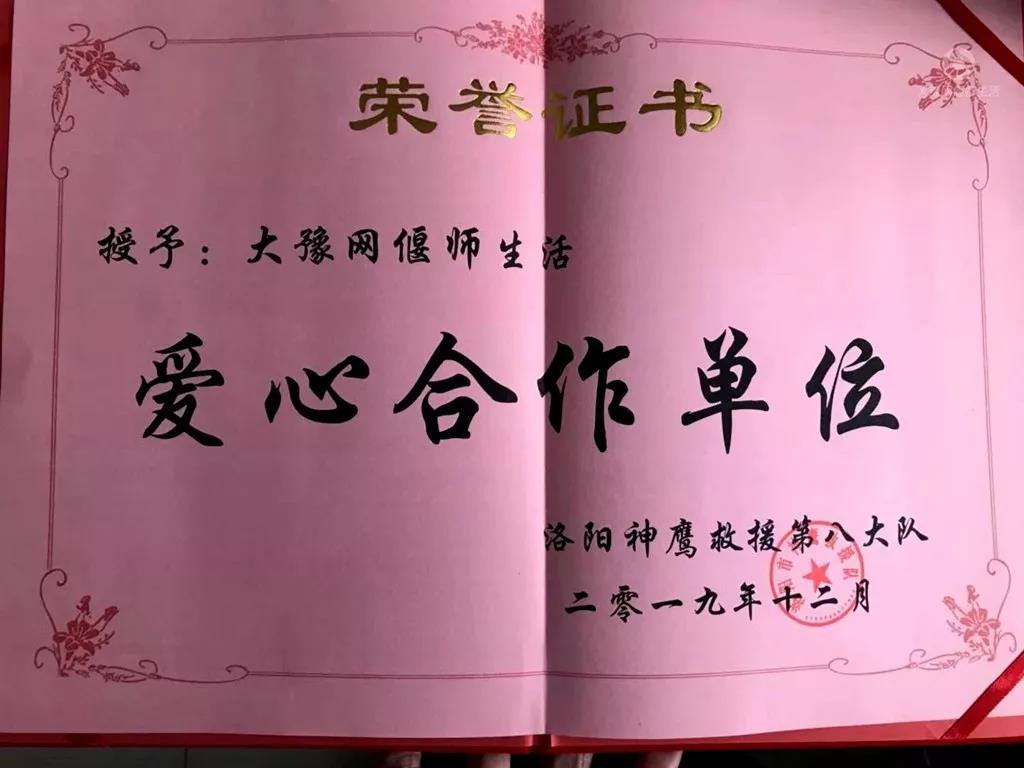 荣誉证书
授予：大豫网偃师生活
爱心合作单位
洛阳神鹰救援第八大队
二零一九年十二月